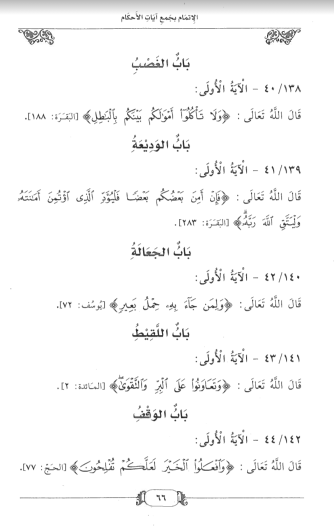 الإتمام بجمع آيات الأحكام
بَابُ الغَصْبِ
٤٠/١٣٨ - الآيَةُ الأُولَى:
قَالَ اللَّهُ تَعَالَى: ﴿وَلَا تَأْكُلُوٓا۟ أَمْوَٰلَكُم بَيْنَكُم بِٱلْبَٰطِلِ﴾ [البَقَرَة: ١٨٨].
بَابُ الوَدِيْعَةِ
٤١/١٣٩ - الآيَةُ الأُولَى:
قَالَ اللَّهُ تَعَالَى: ﴿فَإِنْ أَمِنَ بَعْضُكُم بَعْضًا فَلْيُؤَدِّ ٱلَّذِى ٱؤْتُمِنَ أَمَٰنَتَهُۥ
وَلْيَتَّقِ ٱللَّهَ رَبَّهُۥ﴾ [البَقَرَة: ٢٨٣].
بَابُ الجَعَالَةِ
٤٢/١٤٠ - الآيَةُ الأُولَى:
قَالَ اللَّهُ تَعَالَى: ﴿وَلِمَن جَآءَ بِهِۦ حِمْلُ بَعِيرٍ﴾ [يُوسُف: ٧٢].
بَابُ اللَّقِيْطِ
٤٣/١٤١ - الآيَةُ الأُولَى:
قَالَ اللَّهُ تَعَالَى: ﴿وَتَعَاوَنُوا۟ عَلَى ٱلْبِرِّ وَٱلتَّقْوَىٰ﴾ [المَائدة: ٢].
بَابُ الوَقْفِ
٤٤/١٤٢ - الآيَةُ الأُولَى:
قَالَ اللَّهُ تَعَالَى: ﴿وَٱفْعَلُوا۟ ٱلْخَيْرَ لَعَلَّكُمْ تُفْلِحُونَ﴾ [الحَجّ: ٧٧].
٦٦